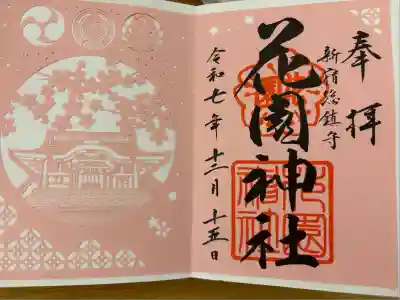 奉拝
新宿総鎮守
花園神社
令和七年十二月十五日
花園
神社